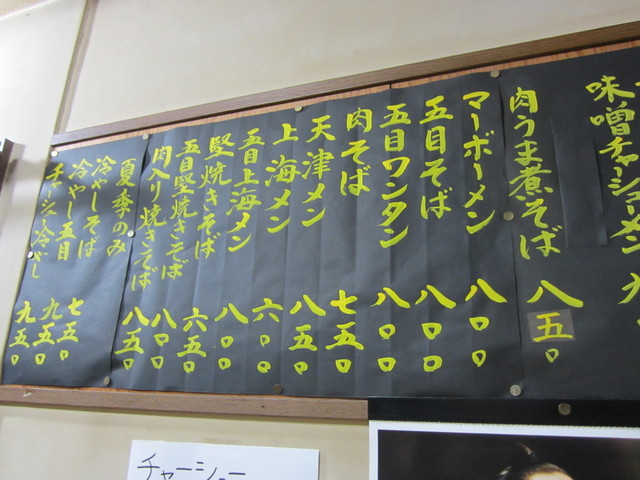 味噌チャーシューメン 九
肉うま煮そば 八五〇
マーボーメン 八〇〇
五目そば 八〇〇
五目ワンタン 八〇〇
肉そば 七五〇
天津メン 八五〇
上海メン 六〇〇
五目上海メン 八〇〇
堅焼きそば 六五〇
五目堅焼きそば 八〇〇
肉入り焼きそば 八五〇
夏季のみ
冷やしそば 七五〇
冷やし五目 九五〇
チャーシュー冷やし 九五〇
チャーシュー